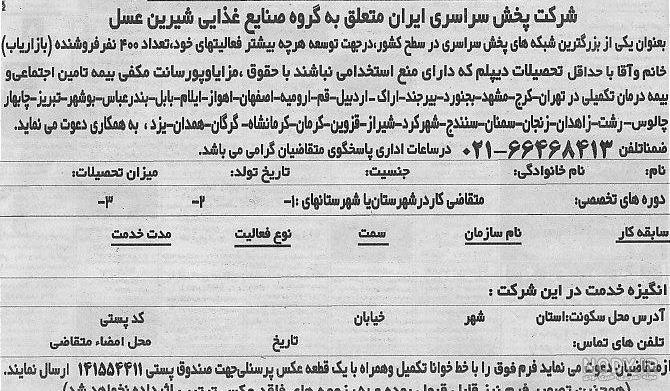 شرکت پخش سراسری ایران متعلق به گروه صنایع غذایی شیرین عسل
بعنوان یکی از بزرگترین شبکه های پخش سراسری در سطح کشور،درجهت توسعه هرچه بیشتر فعالیتهای خود،تعداد ۴۰۰ نفر فروشنده (بازاریاب)
خانم و آقا با حداقل تحصیلات دیپلم که دارای منع استخدامی نباشند با حقوق ،مزایا و پورسانت مکفی بیمه تامین اجتماعی و
بیمه درمان تکمیلی در تهران-کرج-مشهد-بجنورد-بیرجند-اراک-اردبیل-قم-ارومیه-اصفهان-اهواز-ایلام-بابل-بندرعباس-بوشهر-تبریز-چابهار
چالوس-رشت-زاهدان-زنجان-سمنان-سنندج-شهرکرد-شیراز-قزوین-کرمان-کرمانشاه-گرگان-همدان-یزد، به همکاری دعوت می نماید.
ضمناتلفن ۶۶۴۶۸۴۱۳-۰۲۱ در ساعات اداری پاسخگوی متقاضیان گرامی می باشد.
نام: نام خانوادگی: جنسیت: تاریخ تولد: میزان تحصیلات:
دوره های تخصصی: متقاضی کار در شهرستان یا شهرستانهای :۱- ۲- ۳-
سابقه کار نام سازمان سمت نوع فعالیت مدت خدمت
انگیزه خدمت در این شرکت :
آدرس محل سکونت:استان شهر خیابان کد پستی
تلفن های تماس: تاریخ محل امضاء متقاضی
از متقاضیان دعوت می نماید فرم فوق را با خط خوانا تکمیل وهمراه با یک قطعه عکس پرسنلی جهت صندوق پستی ۱۴۱۵۵۴۴۱۱ ارسال نمایند.